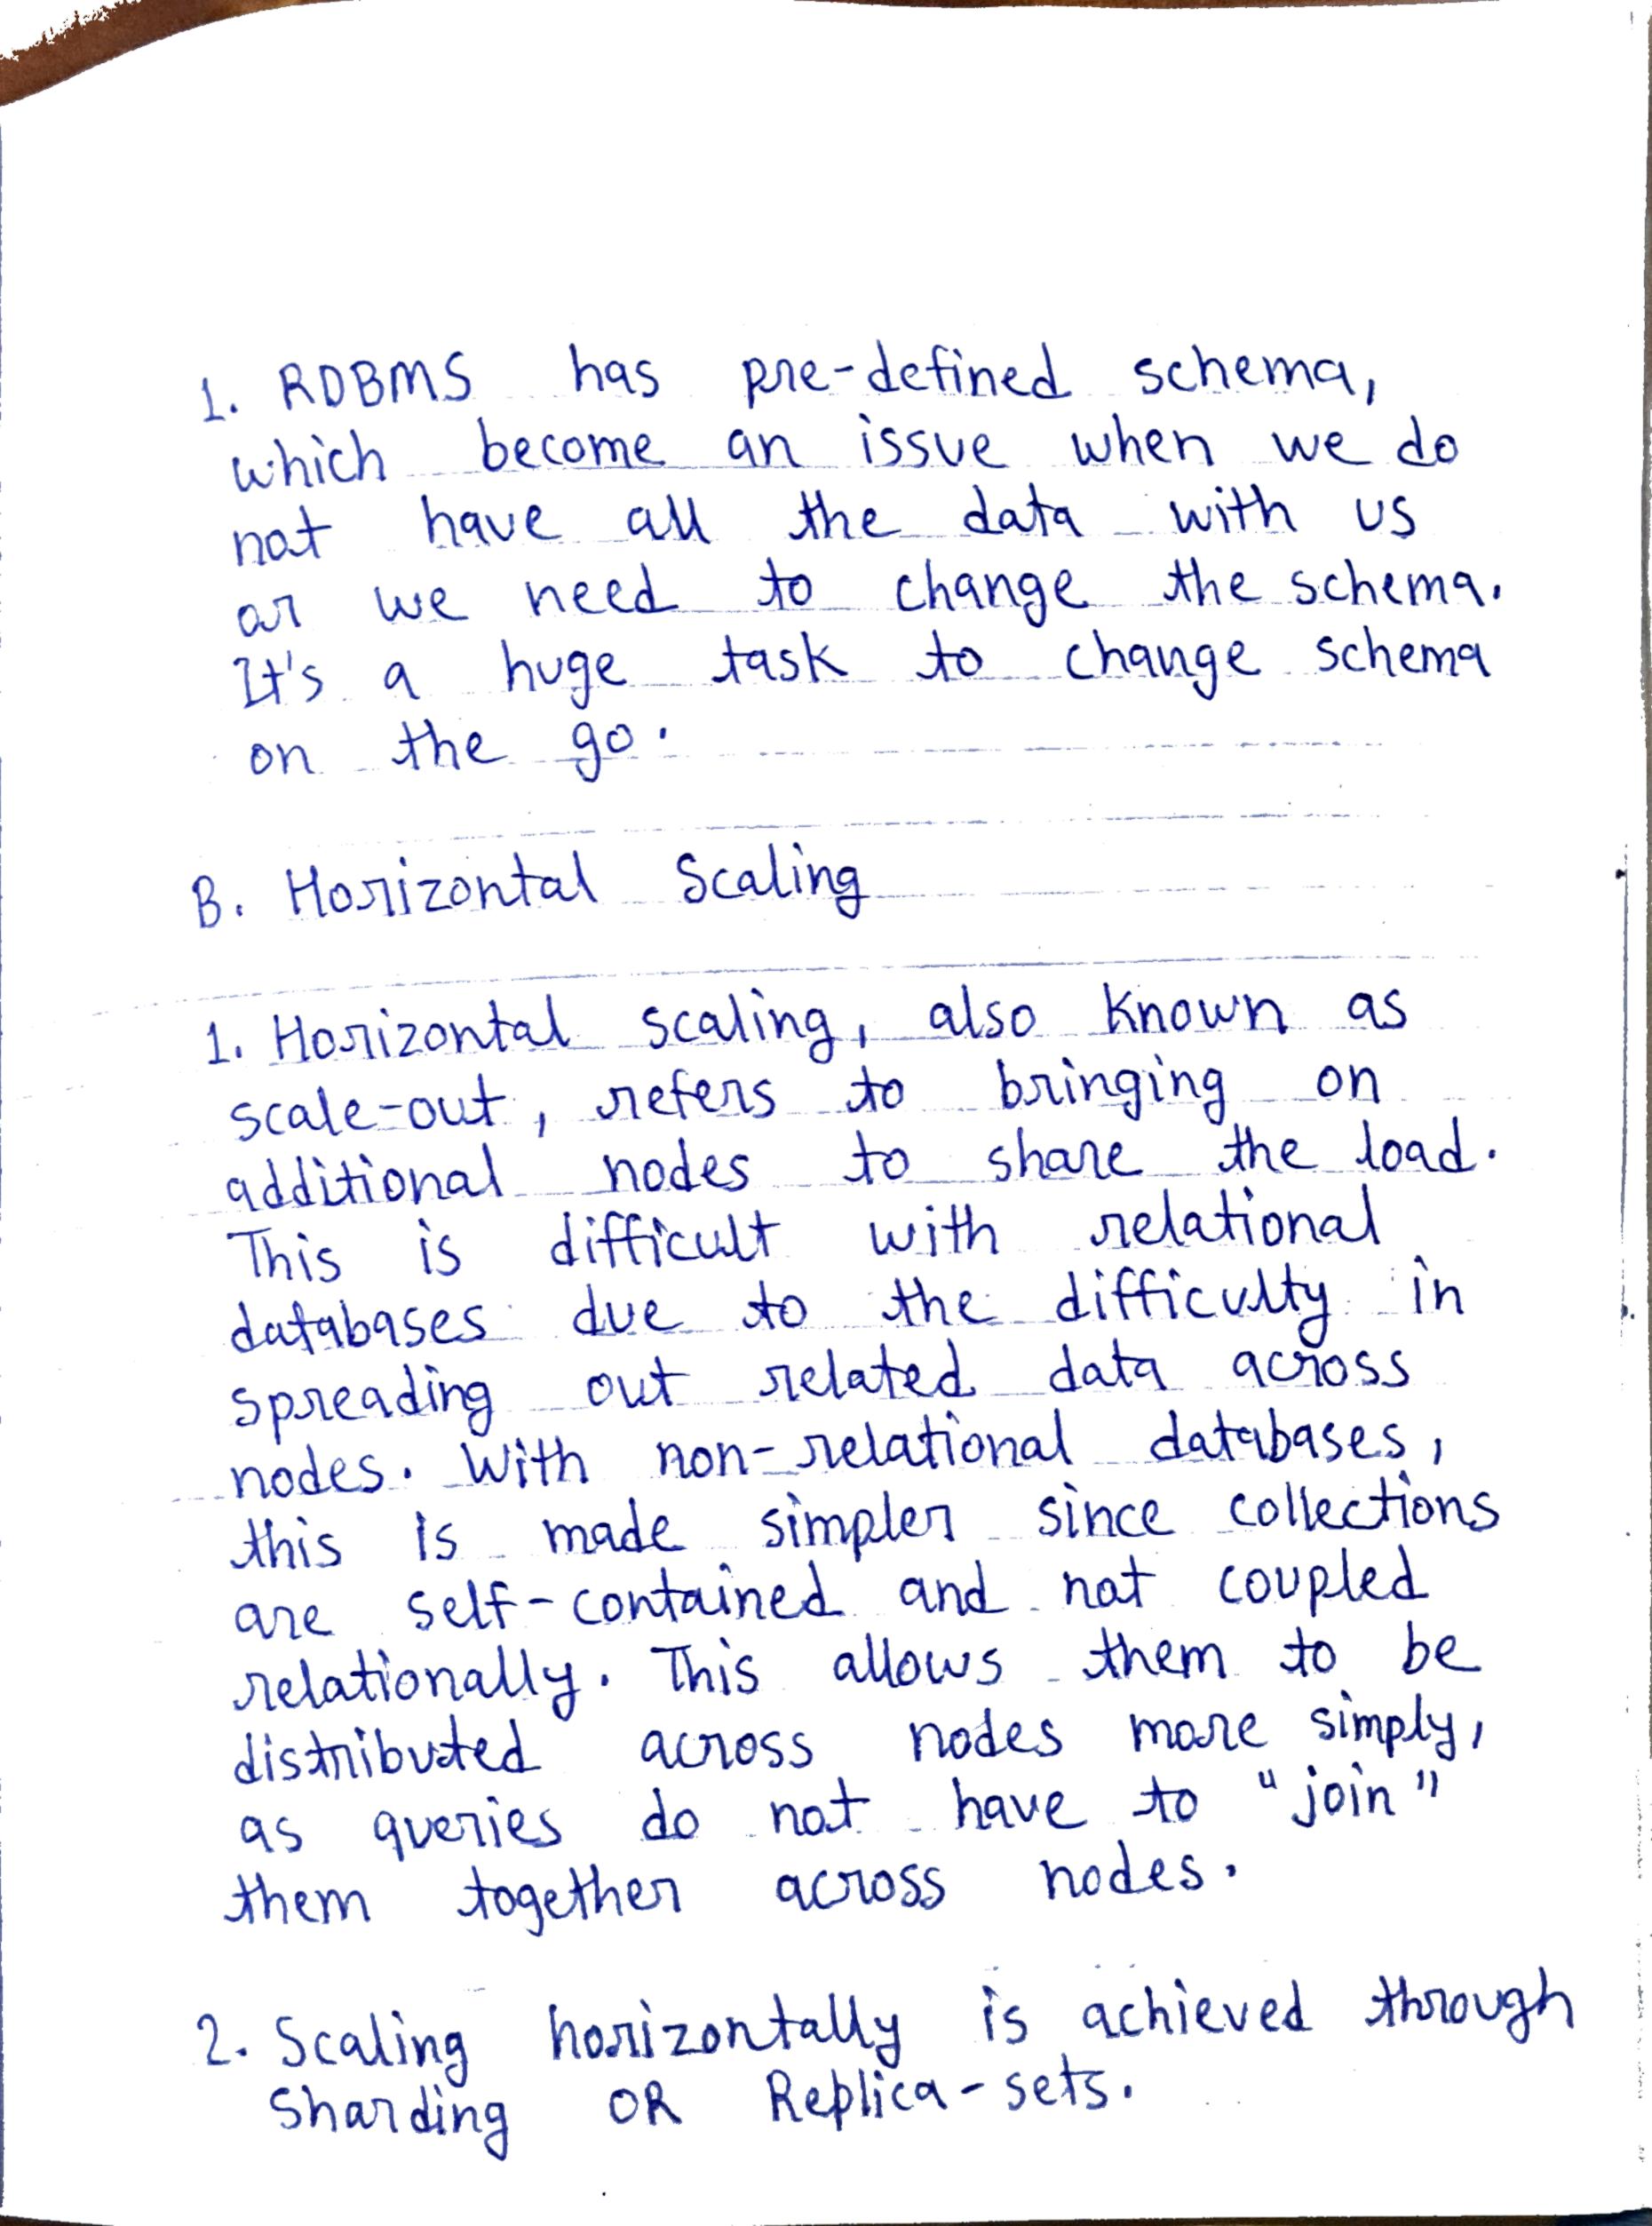 1. RDBMS has pre-defined schema,
which become an issue when we do
not have all the data with us
or we need to change the schema.
It's a huge task to change schema
on the go.
B. Horizontal Scaling
1. Horizontal scaling, also known as
scale-out, refers to bringing on
additional nodes to share the load.
This is difficult with relational
databases due to the difficulty in
spreading out related data across
nodes. With non-relational databases,
this is made simpler since collections
are self-contained and not coupled
relationally. This allows them to be
distributed across nodes more simply,
as queries do not have to "join"
them together across nodes.
2. Scaling horizontally is achieved through
Sharding OR Replica-sets.